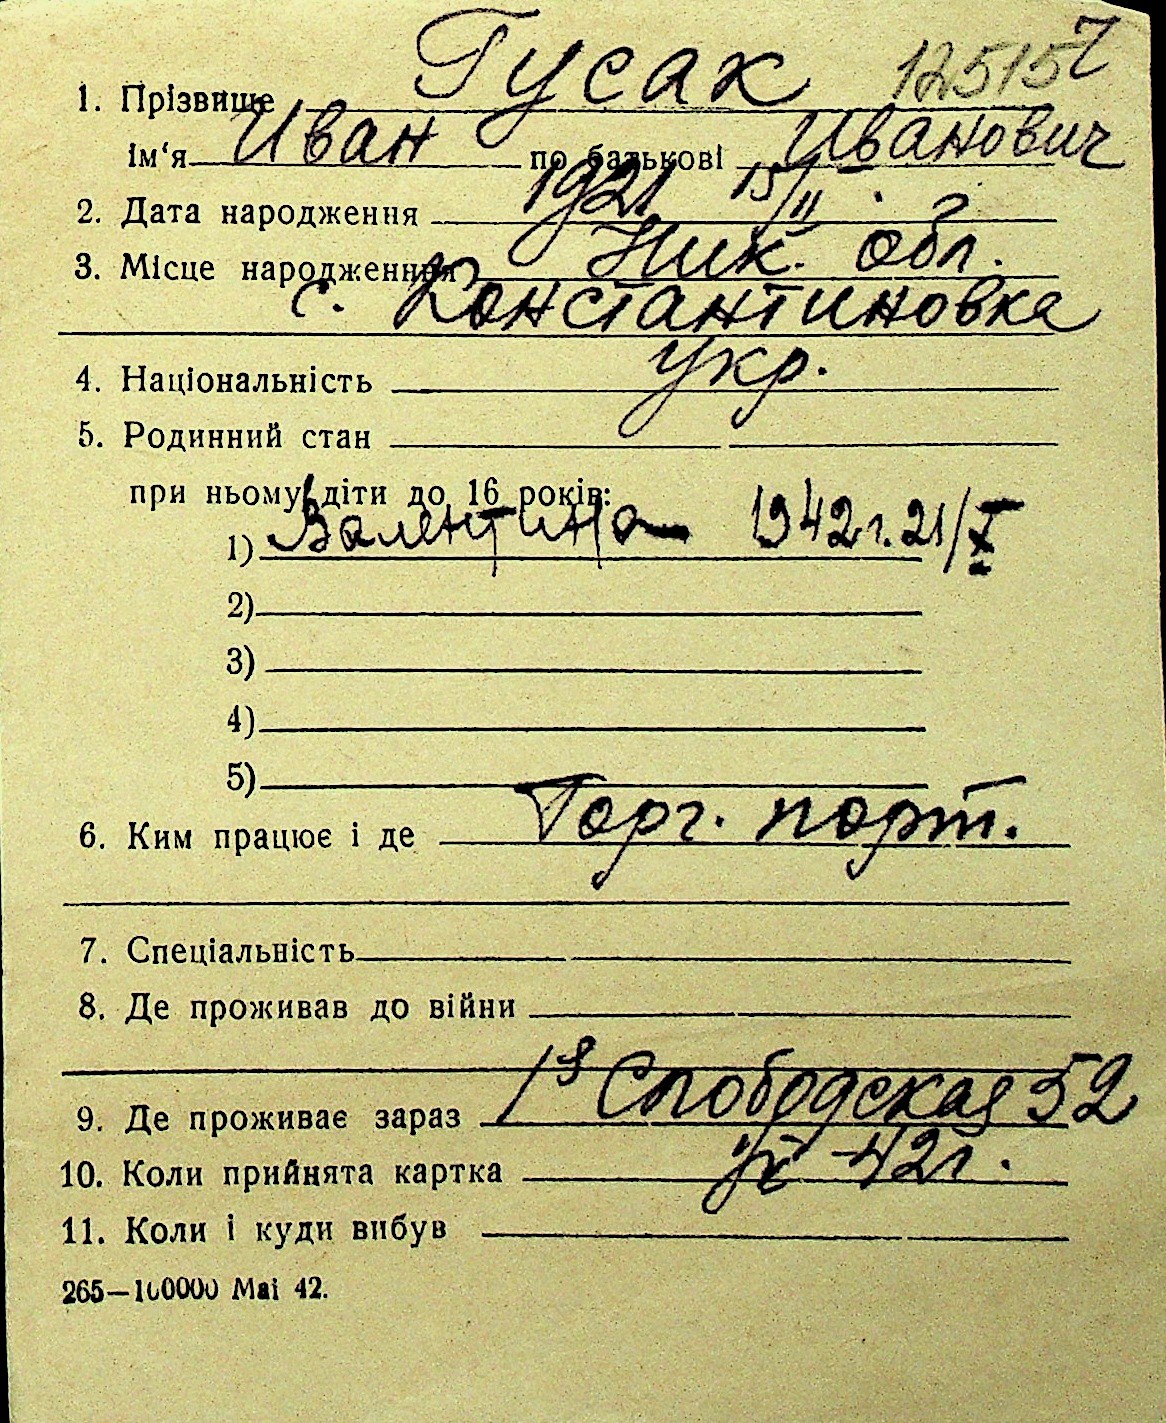 125157
1. Прізвище Гусак
Ім'я Иван по батькові Иванович
2. Дата народження 1921 15/II
3. Місце народженння Ник. обл.
с. Константиновка
4. Національність укр.
5. Родинний стан
при ньому діти до 16 років:
1) Валентина 1942 г. 21/X
2)
3)
4)
5)
6. Ким працює і де Торг. порт.
7. Спеціальність
8. Де проживав до війни
9. Де проживає зараз Слободская 52
10. Коли прийнята картка -42 г.
11. Коли і куди вибув
265—100000 Mai 42.